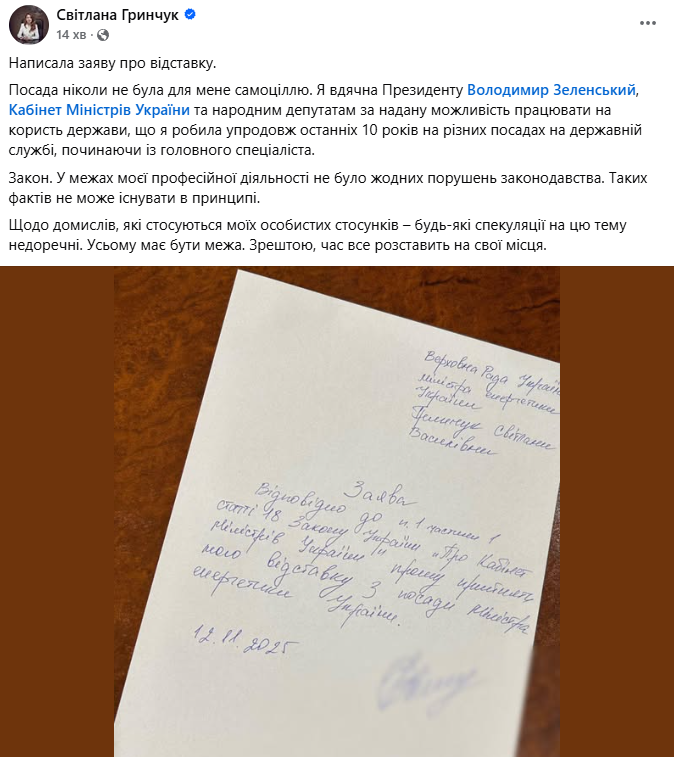 Світлана Гринчук
14 хв ·
Написала заяву про відставку.
Посада ніколи не була для мене самоціллю. Я вдячна Президенту Володимир Зеленський,
Кабінет Міністрів України та народним депутатам за надану можливість працювати на
користь держави, що я робила упродовж останніх 10 років на різних посадах на державній
службі, починаючи із головного спеціаліста.
Закон. У межах моєї професійної діяльності не було жодних порушень законодавства. Таких
фактів не може існувати в принципі.
Щодо домислів, які стосуються моїх особистих стосунків – будь-які спекуляції на цю тему
недоречні. Усьому має бути межа. Зрештою, час все розставить на свої місця.
Верховна Рада Україн
міністра енергетики
України
Гринчук Світлани
Василівни
Заява
Відповідно до п. 1 частини 1
статті 18 Закону України „Про Кабінет
Міністрів України" прошу прийняти
мою відставку з посади Міністра
енергетики України.
12.11.2025